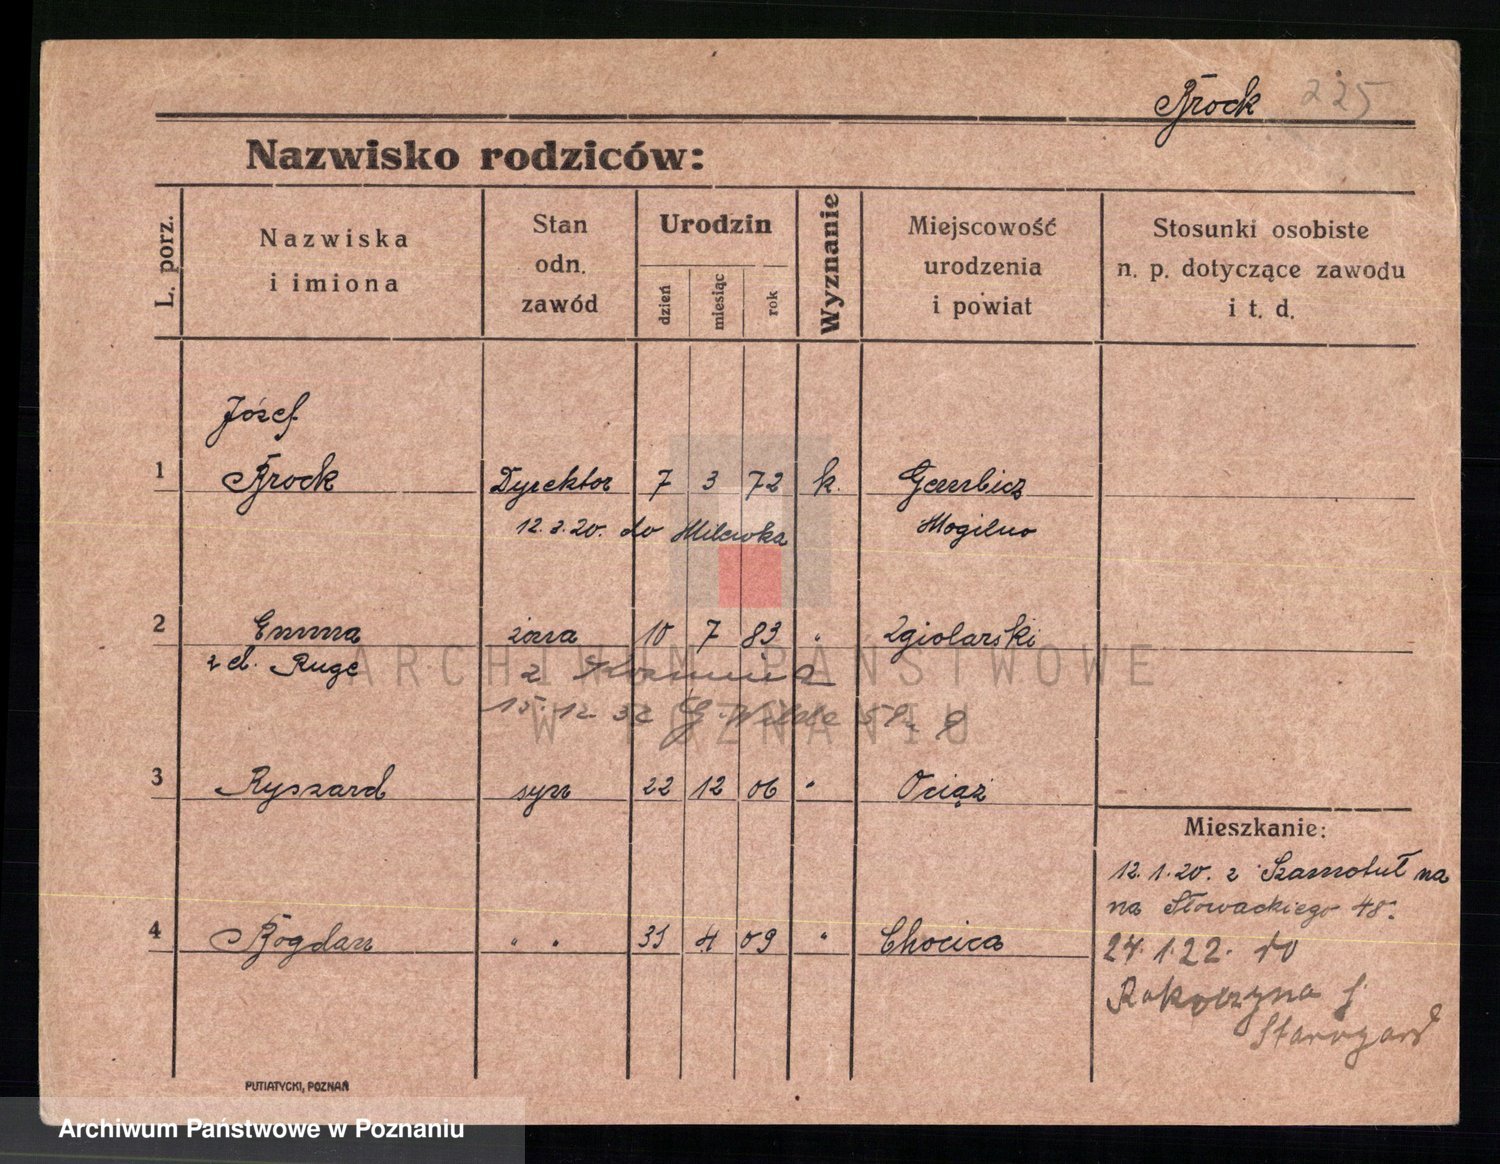 Brock 225
Nazwisko rodziców:
L. porz.
Nazwiska
i imiona
Stan
odn.
zawód
Urodzin
dzień
miesiąc
rok
Wyznanie
Miejscowość
urodzenia
i powiat
Stosunki osobiste
n. p. dotyczące zawodu
i t. d.
Józef
1 Brock Dyrektor 7 3 72 k. Gembicz
12.3.20. do Mogilno
2 Emma żona 10 7 83 "
z d. Ruge z
15.12.32
3 Ryszard syn 22 12 06 " Ociąż
Mieszkanie:
12.1.20. z Szamotuł na
na Słowackiego 48.
4 Bogdan " " 4 09 " Chocica
24.1.22. do
Starogard
PUTIATYCKI, POZNAŃ
ARCHIWUM PAŃSTWOWE
W POZNANIU
Archiwum Państwowe w Poznaniu